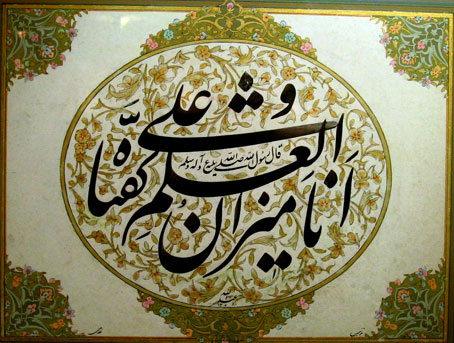 قال رسول الله صلى الله عليه و آله وسلم
اَنا ميزان العلمِ و على كفّتاه